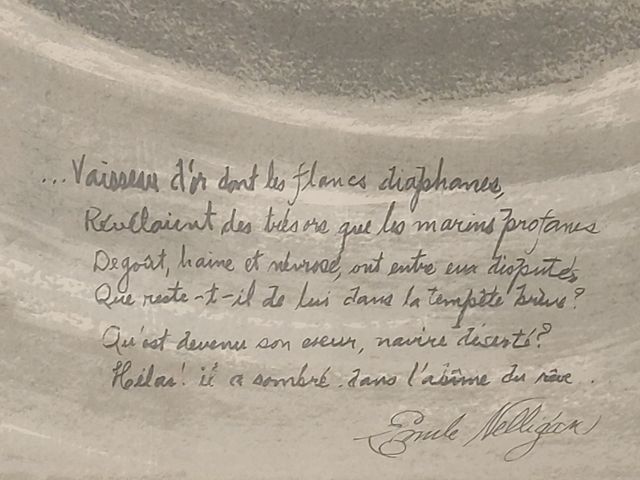 ...Vaisseau d'or dont les flancs diaphanes,
Révélaient des trésors que les marins profanes
Dégoût, haine et névrose, ont entre eux disputés,
Que reste-t-il de lui dans la tempête brève?
Qu'est devenu son coeur, navire déserté?
Hélas! il a sombré dans l'abîme du rêve.
Emile Nelligan